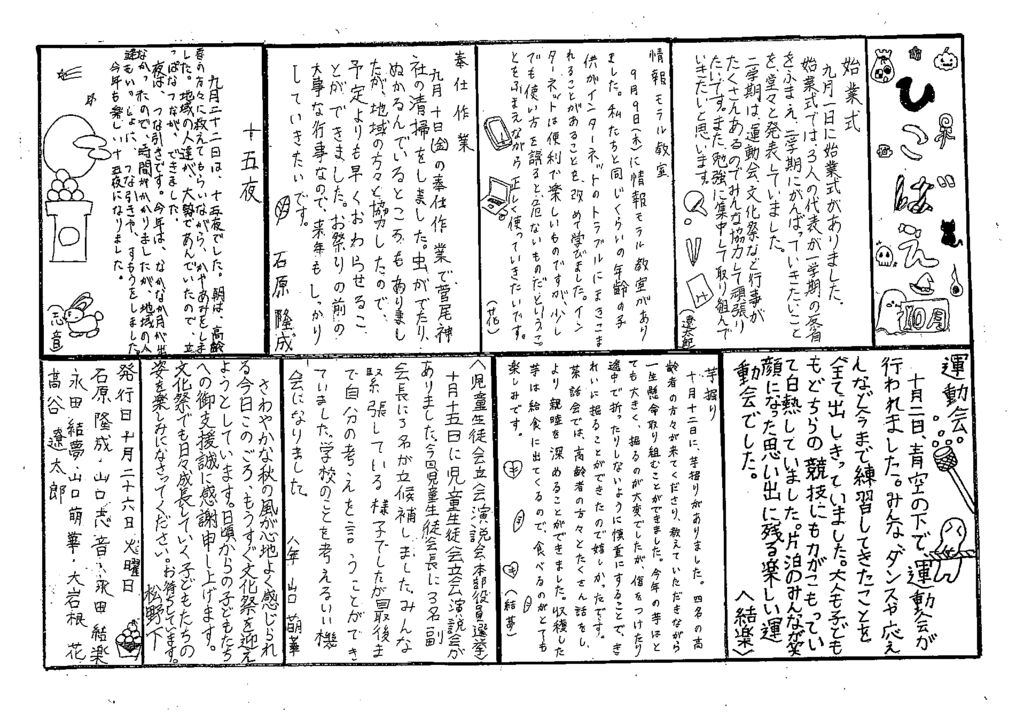 ひこばえ
10月
始業式
九月一日に始業式がありました。
始業式では、3人の代表が一学期の反省
をふまえ、二学期にがんばっていきたいこと
を堂々と発表していました。
二学期は、運動会、文化祭など行事が
たくさんあるのでみんな協力して頑張り
たいです。また、勉強に集中して取り組んで
いきたいと思います。
(遼太郎)
情報モラル教室
9月9日(木)に情報モラル教室があり
ました。私たちと同じくらいの年齢の子
供がインターネットのトラブルにまきこま
れることがあることを、改めて学びました。イン
ターネットは便利で楽しいものですが、少し
でも使い方を誤ると危ないものだというこ
とをふまえながら正しく使っていきたいです。
(花)
奉仕作業
九月十日(金)の奉仕作業で菅尾神
社の清掃をしました。虫がでたり、
ぬかるんでいるところもありまし
たが、地域の方々と協力したので、
予定よりも早くおわらせるこ
とができました。お祭りの前の
大事な行事なので、来年もしっかり
としていきたいです。
石原 隆成
十五夜
九月二十二日は、十五夜でした。朝は、高齢
者の方々に教えてもらいながら、かやあみをしま
した。地域の人達が、大勢であんでいたので、立
っぱなつながができました。
夜は、つな引きです。今年は、なかなか月が出
なかったので、時間がかかりましたが、地域の人
達もいっしょに、つな引きや、すもうをしました。
今年も楽しい十五夜になりました。
(志音)
運動会
十月二日、青空の下で、運動会が
行われました。みんなダンスや応え
んなど今まで練習してきたことを
全て出しきっていました。大人も子ども
もどちらの競技にも力がこもってい
て白熱していました。片泊のみんなが笑
顔になった思い出に残る楽しい運
動会でした。
〈結楽〉
芋掘り
十月十二日に芋掘りがありました。四名の高
齢者の方々が来てくださり、教えていただきながら
一生懸命取り組むことができました。今年の芋はと
ても大きく、掘るのが大変でしたが、傷をつけたり
途中で折ったりしないように慎重にすることで、き
れいに掘ることができたので嬉しかったです。
茶話会では、高齢者の方々とたくさん話をし、
より親睦を深めることができました。収穫した
芋は給食に出てくるので、食べるのがとても
楽しみです。
〈結夢〉
〈児童生徒会立会演説会・本部役員選挙〉
十月十五日に児童生徒会立会演説会が
ありました。今回児童生徒会長に3名、副
会長に3名が立候補しました。みんな
緊張している様子でしたが最後ま
で自分の考えを言うことができ
ていました。学校のことを考えるいい機
会になりました。
八年 山口 萌華
さわやかな秋の風が心地よく感じられ
る今日このごろ、もうすぐ文化祭を迎え
ようとしています。日頃からの子どもたち
への御支援誠に感謝申し上げます。
文化祭でも日々成長していく子どもたちの
姿を楽しみになさってください。お待ちしています。
松野下
発行日 十月二十六日 火曜日
石原 隆成・山口 志音・永田 結楽
永田 結夢・山口 萌華・大岩根 花
高谷 遼太郎